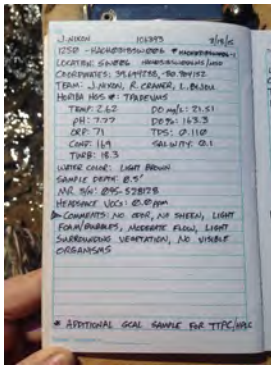 J. NIXON 106393 2/18/15
1250 - HACH0318SW006
LOCATION: SW006
COORDINATES: 39.644738, -80.784152
TEAM: J. NIXON, R. CRAMER,
HORIBA NGS #:
TEMP: 2.62 DO mg/L: 21.51
pH: 7.77 DO%: 163.3
ORP: 71 TDS: 0.110
COND: 169 SALINITY: 0.1
TURB: 18.3
WATER COLOR: LIGHT BROWN
SAMPLE DEPTH: 0.5'
MR S/N: 095-528128
HEADSPACE VOCs: 0.0 ppm
COMMENTS: NO ODOR, NO SHEEN, LIGHT
FOAM/BUBBLES, MODERATE FLOW, LIGHT
SURROUNDING VEGETATION, NO VISIBLE
ORGANISMS
* ADDITIONAL GCAL SAMPLE FOR